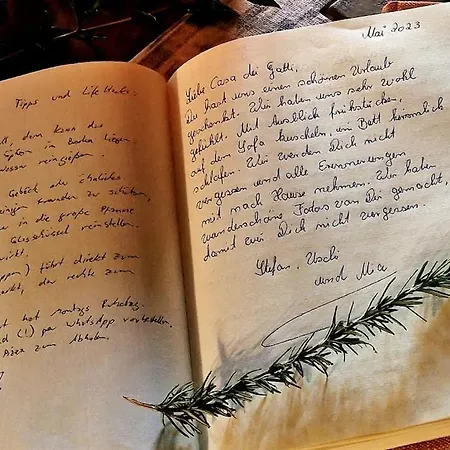 Tipps und Life Hacks:
dann kann das
in Boden liegen
Wasser reingießen.
Gebäck oder ähnliches
zu schützen,
in die große Pfanne
Glasschüssel reinstellen.
) führt direkt zum
, der rechte zum
hat montags Ruhetag.
(!) per WhatsApp vorbestellen.
zum Abholen.
Mai 2023
Liebe Casa dei Gatti,
Du hast uns einen schönen Urlaub
geschenkt. Wir haben uns sehr wohl
gefühlt. Mit Ausblick frühstücken,
auf dem Sofa kuscheln, im Bett himmlisch
schlafen. Wir werden Dich nicht
vergessen und alle Erinnerungen
mit nach Hause nehmen. Wir haben
wunderschöne Fotos von Dir gemacht,
damit wir Dich nicht vergessen.
Stefan, Uschi
und Mia